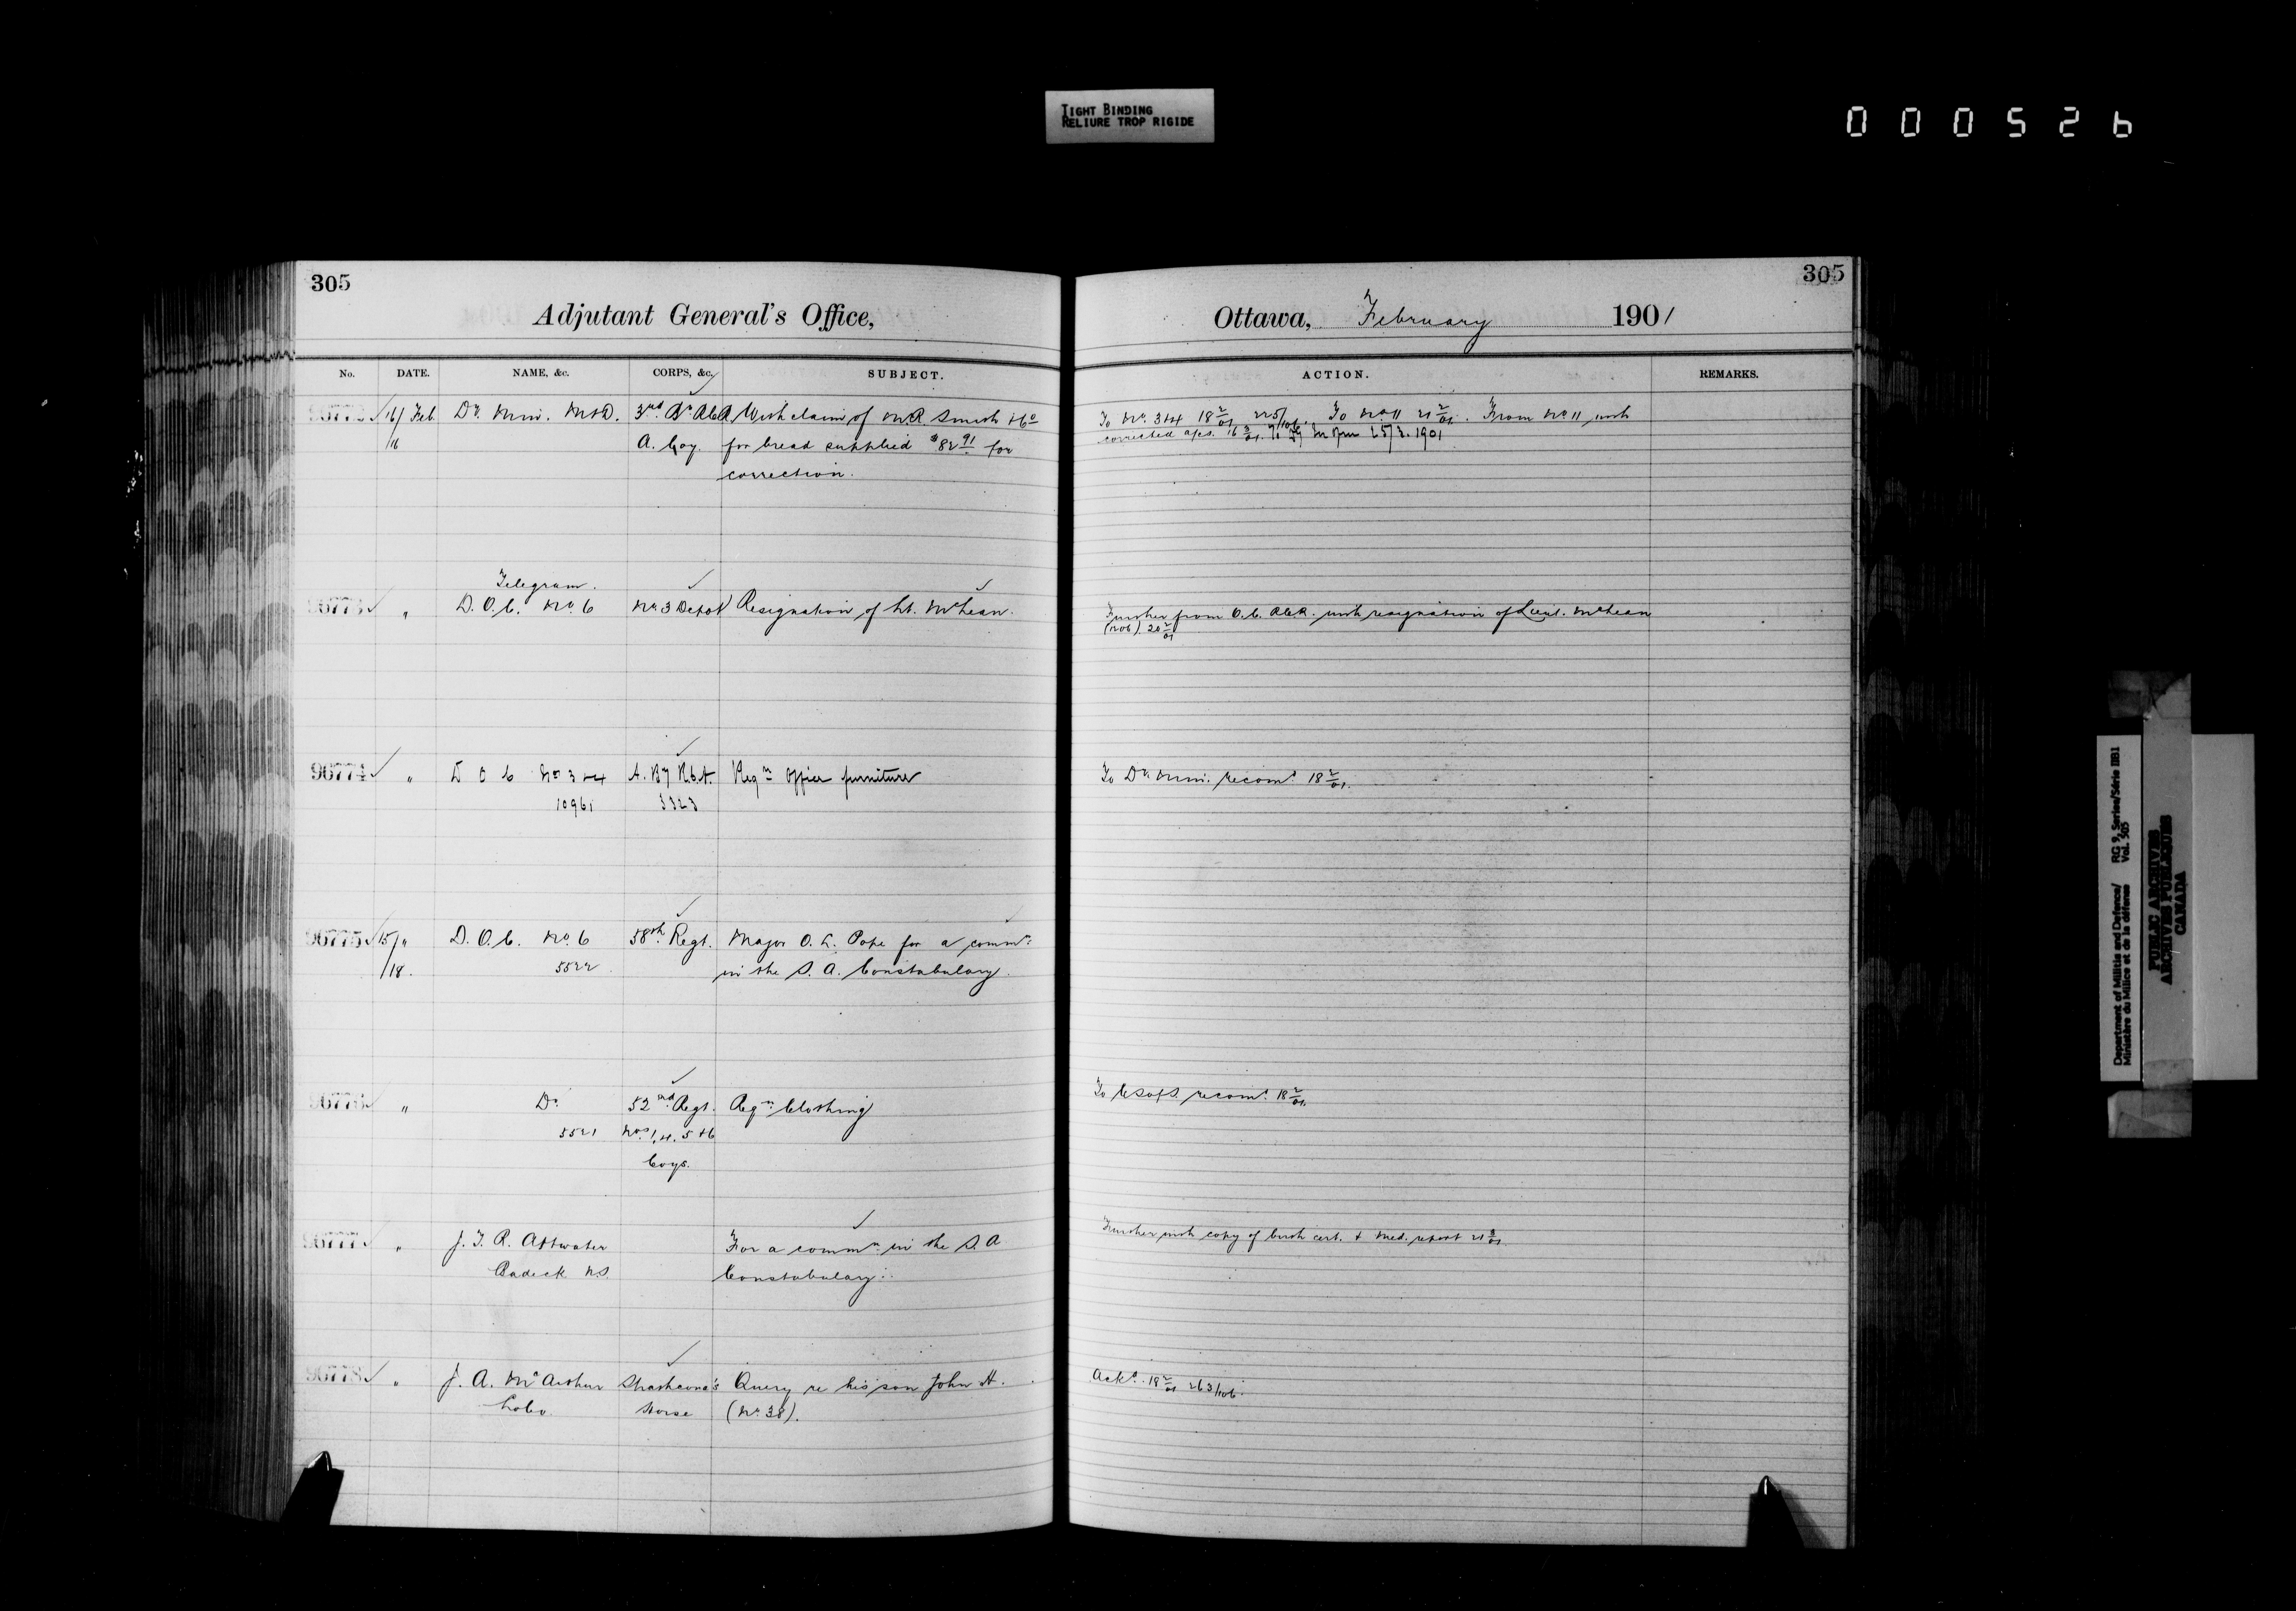 TIGHT BINDING
RELIURE TROP RIGIDE
000526
305
Adjutant General's Office,
No. DATE. NAME, &c. CORPS, &c. SUBJECT.
96772 16/ Feb Dy. Min. M&D. 3rd Bn. RCR With claim of M.R. Smith & Co
/16 A. Coy. for bread supplied $82 91 for
correction.
Telegram.
96773 " D.O.C. No. 6 No 3 Depot Resignation of Lt. McLean.
96774 " D O C No 3 & 4 A. By R.C.A. Reqn Office furniture
96775 15/ " D.O.C. No. 6 58th Regt. Major O. L. Pope for a commn.
/18. 5522 in the S. A. Constabulary.
96776 " Do 52nd Regt. Reqn. Clothing
5521 Nos 1, 4, 5 & 6
Coys.
96777 " J. T. R. Attwater For a commn. in the S. A
Badeck N.S. Constabulary.
96778 " J. A. McArthur Strathcona's Query re his son John A.
Lobo Horse (No. 38).
305
Ottawa, February 1901
ACTION. REMARKS.
To No. 3&4 18 2/01 225/106. To No 11 21 2/01. From No 11 with
corrected a/cs. 16 3/01. 25/3.1901
Further from O.C. RCR. with resignation of Lieut. McLean
(1206) 20 2/01
To Dy Min. recomd. 18 2/01.
To C.S. of S. recomd. 18 2/01.
Further with copy of birth cert. & med. report 21 3/01.
Ackd. 18 2/01 263/106.
Department of Militia and Defence/ RG 9, Series/Série IIB1
Ministère du Milice et de la défence Vol. 505
PUBLIC ARCHIVES
ARCHIVES PUBLIQUES
CANADA